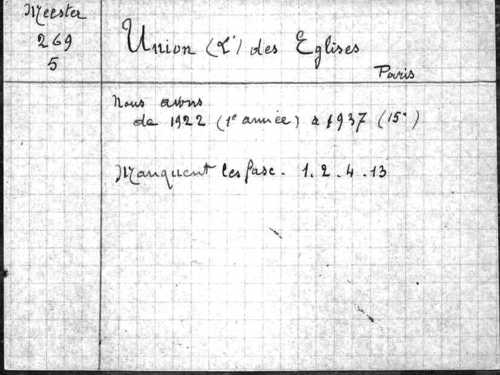 Meester
269
5
Union (L') des Eglises
Paris
Nous avons
de 1922 (1e année) à 1937 (15e)
Manquent les fasc. 1. 2. 4. 13